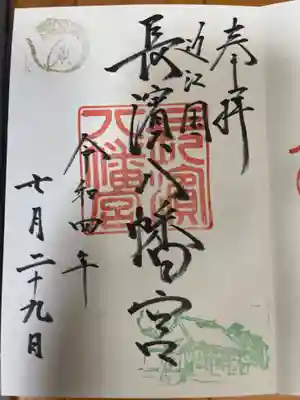 奉拝
近江国
長濱八幡宮
令和四年
七月二十九日
長濱
八幡宮